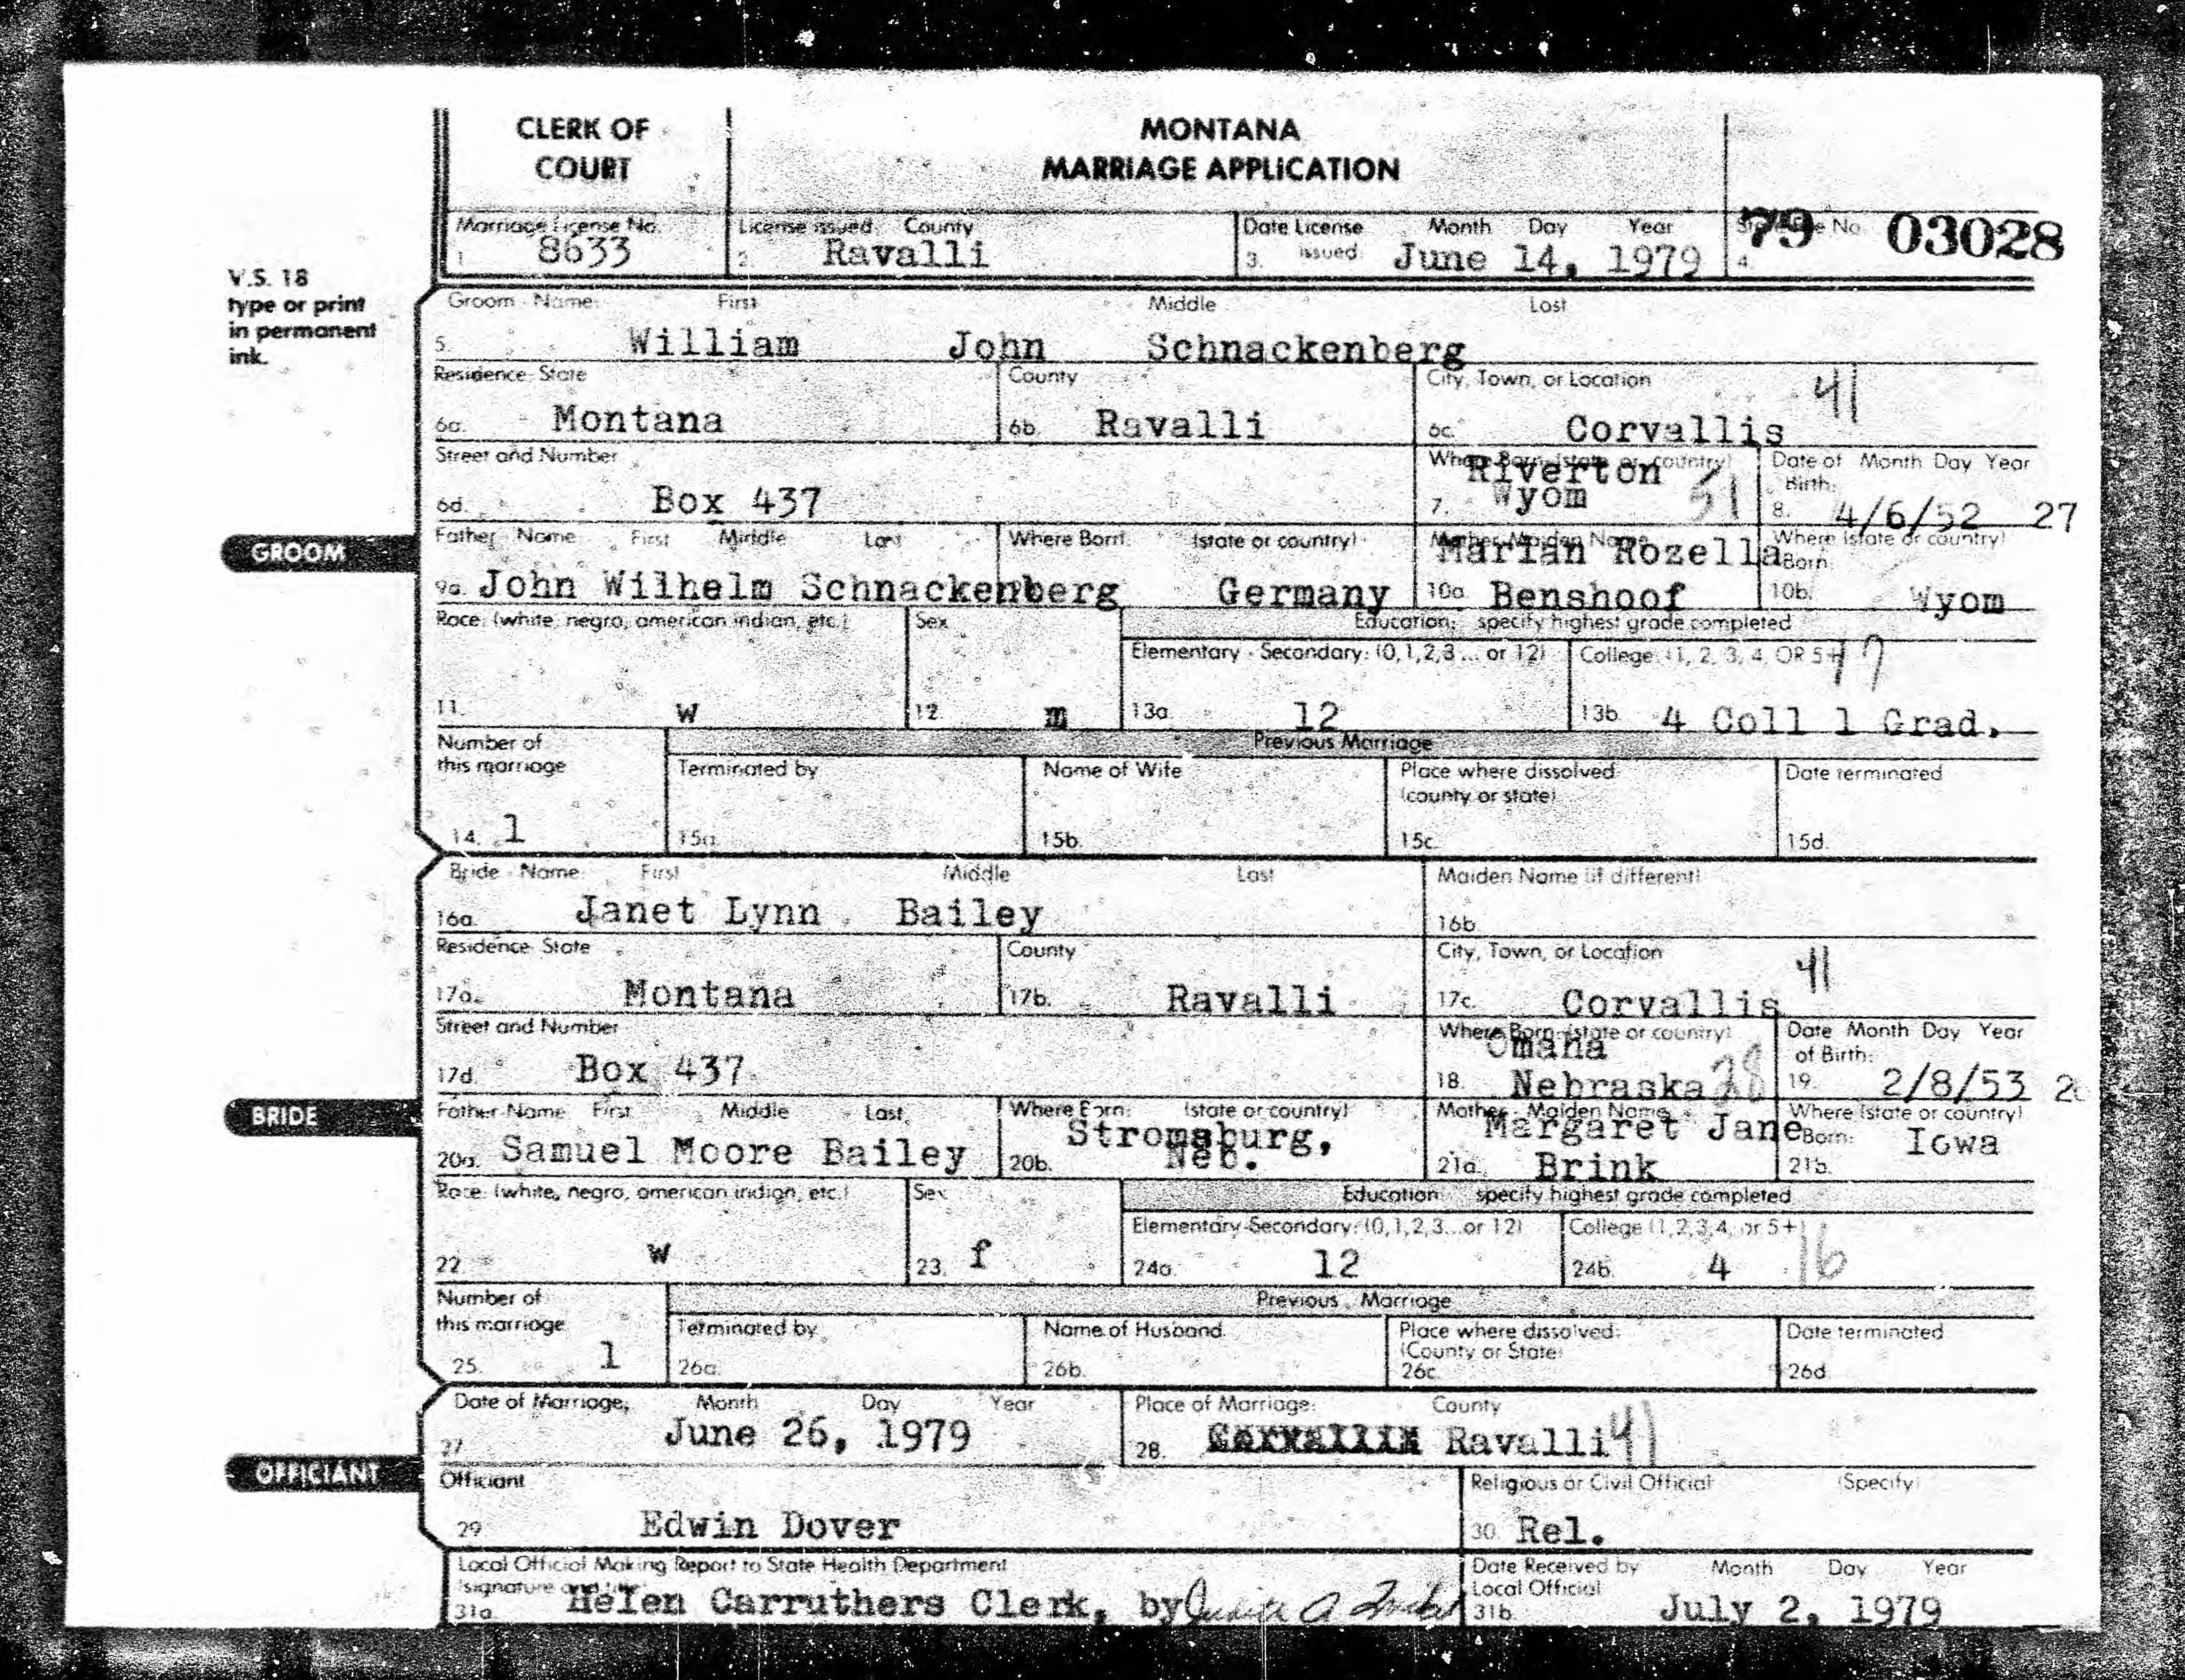 CLERK OF
COURT
MONTANA
MARRIAGE APPLICATION
Marriage License No.
1 8633
License issued County
2. Ravalli
Date License issued Month Day Year
3. June 14, 1979
No.
4. 79 03028
V.S. 18
type or print
in permanent
ink.
GROOM
Groom - Name: First Middle Last
5. William John Schnackenberg
Residence State
6a. Montana
County
6b. Ravalli
City, Town, or Location 41
6c. Corvallis
Street and Number
6d. Box 437
Where Born (state or country)
Riverton
7. Wyom 51
Date of Birth: Month Day Year
8. 4/6/52 27
Father Name First Middle Last
9a. John Wilhelm Schnackenberg
Where Born: (state or country)
Germany
Mother Maiden Name
Marian Rozella
10a. Benshoof
Where Born: (state or country)
10b. Wyom
Race: (white, negro, american indian, etc.)
11. W
Sex
12. m
Education: specify highest grade completed
Elementary - Secondary: (0,1,2,3... or 12)
13a. 12
College (1, 2, 3, 4, OR 5+) 17
13b. 4 Coll 1 Grad.
Number of
this marriage
14. 1
Previous Marriage
Terminated by
15a.
Name of Wife
15b.
Place where dissolved
(county or state)
15c.
Date terminated
15d.
BRIDE
Bride - Name: First Middle Last
16a. Janet Lynn Bailey
Maiden Name (if different)
16b.
Residence State
17a. Montana
County
17b. Ravalli
City, Town, or Location 41
17c. Corvallis
Street and Number
17d. Box 437
Where Born (state or country)
Omaha
18. Nebraska 28
Date of Birth: Month Day Year
19. 2/8/53
Father Name First Middle Last
20a. Samuel Moore Bailey
Where Born: (state or country)
Stromsburg,
20b. Neb.
Mother - Maiden Name
Margaret Jane
21a. Brink
Where Born: (state or country)
21b. Iowa
Race: (white, negro, american indian, etc.)
22. W
Sex
23. f
Education specify highest grade completed
Elementary-Secondary: (0,1,2,3...or 12)
24a. 12
College (1,2,3,4, or 5+) 16
24b. 4
Number of
this marriage
25. 1
Previous Marriage
Terminated by
26a.
Name of Husband
26b.
Place where dissolved:
(County or State)
26c.
Date terminated
26d.
OFFICIANT
Date of Marriage, Month Day Year
27. June 26, 1979
Place of Marriage: County
28. Ravalli 41
Officiant
29 Edwin Dover
Religious or Civil Official (Specify)
30. Rel.
Local Official Making Report to State Health Department
(signature
31a. Helen Carruthers Clerk, by
Date Received by Local Official Month Day Year
31b. July 2, 1979